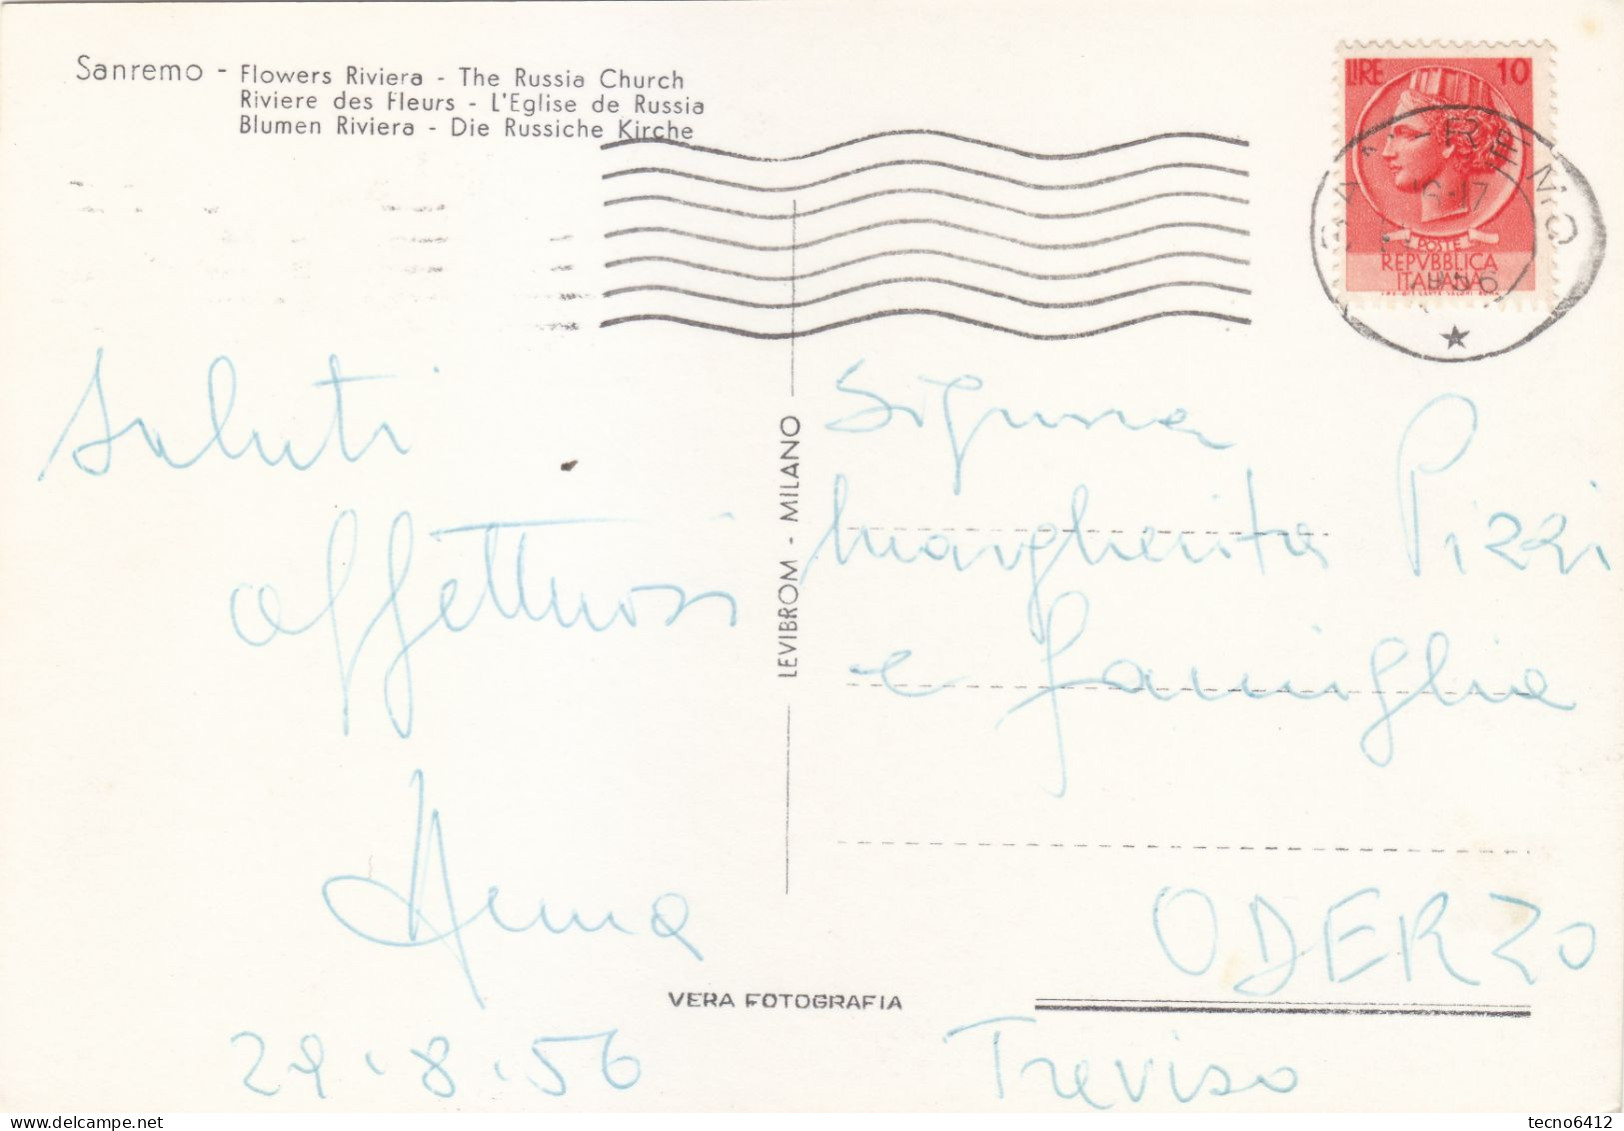 Sanremo - Flowers Riviera - The Russia Church
Riviere des Fleurs - L'Eglise de Russia
Blumen Riviera - Die Russiche Kirche
LIRE 10
POSTE
REPVBBLICA
ITALIANA
16-17
1956
Saluti
affettuosi
Anna
29.8.56
LEVIBROM - MILANO
Signora
Margherita Pizzi
e famiglia
ODERZO
Treviso
VERA FOTOGRAFIA
tecno6412